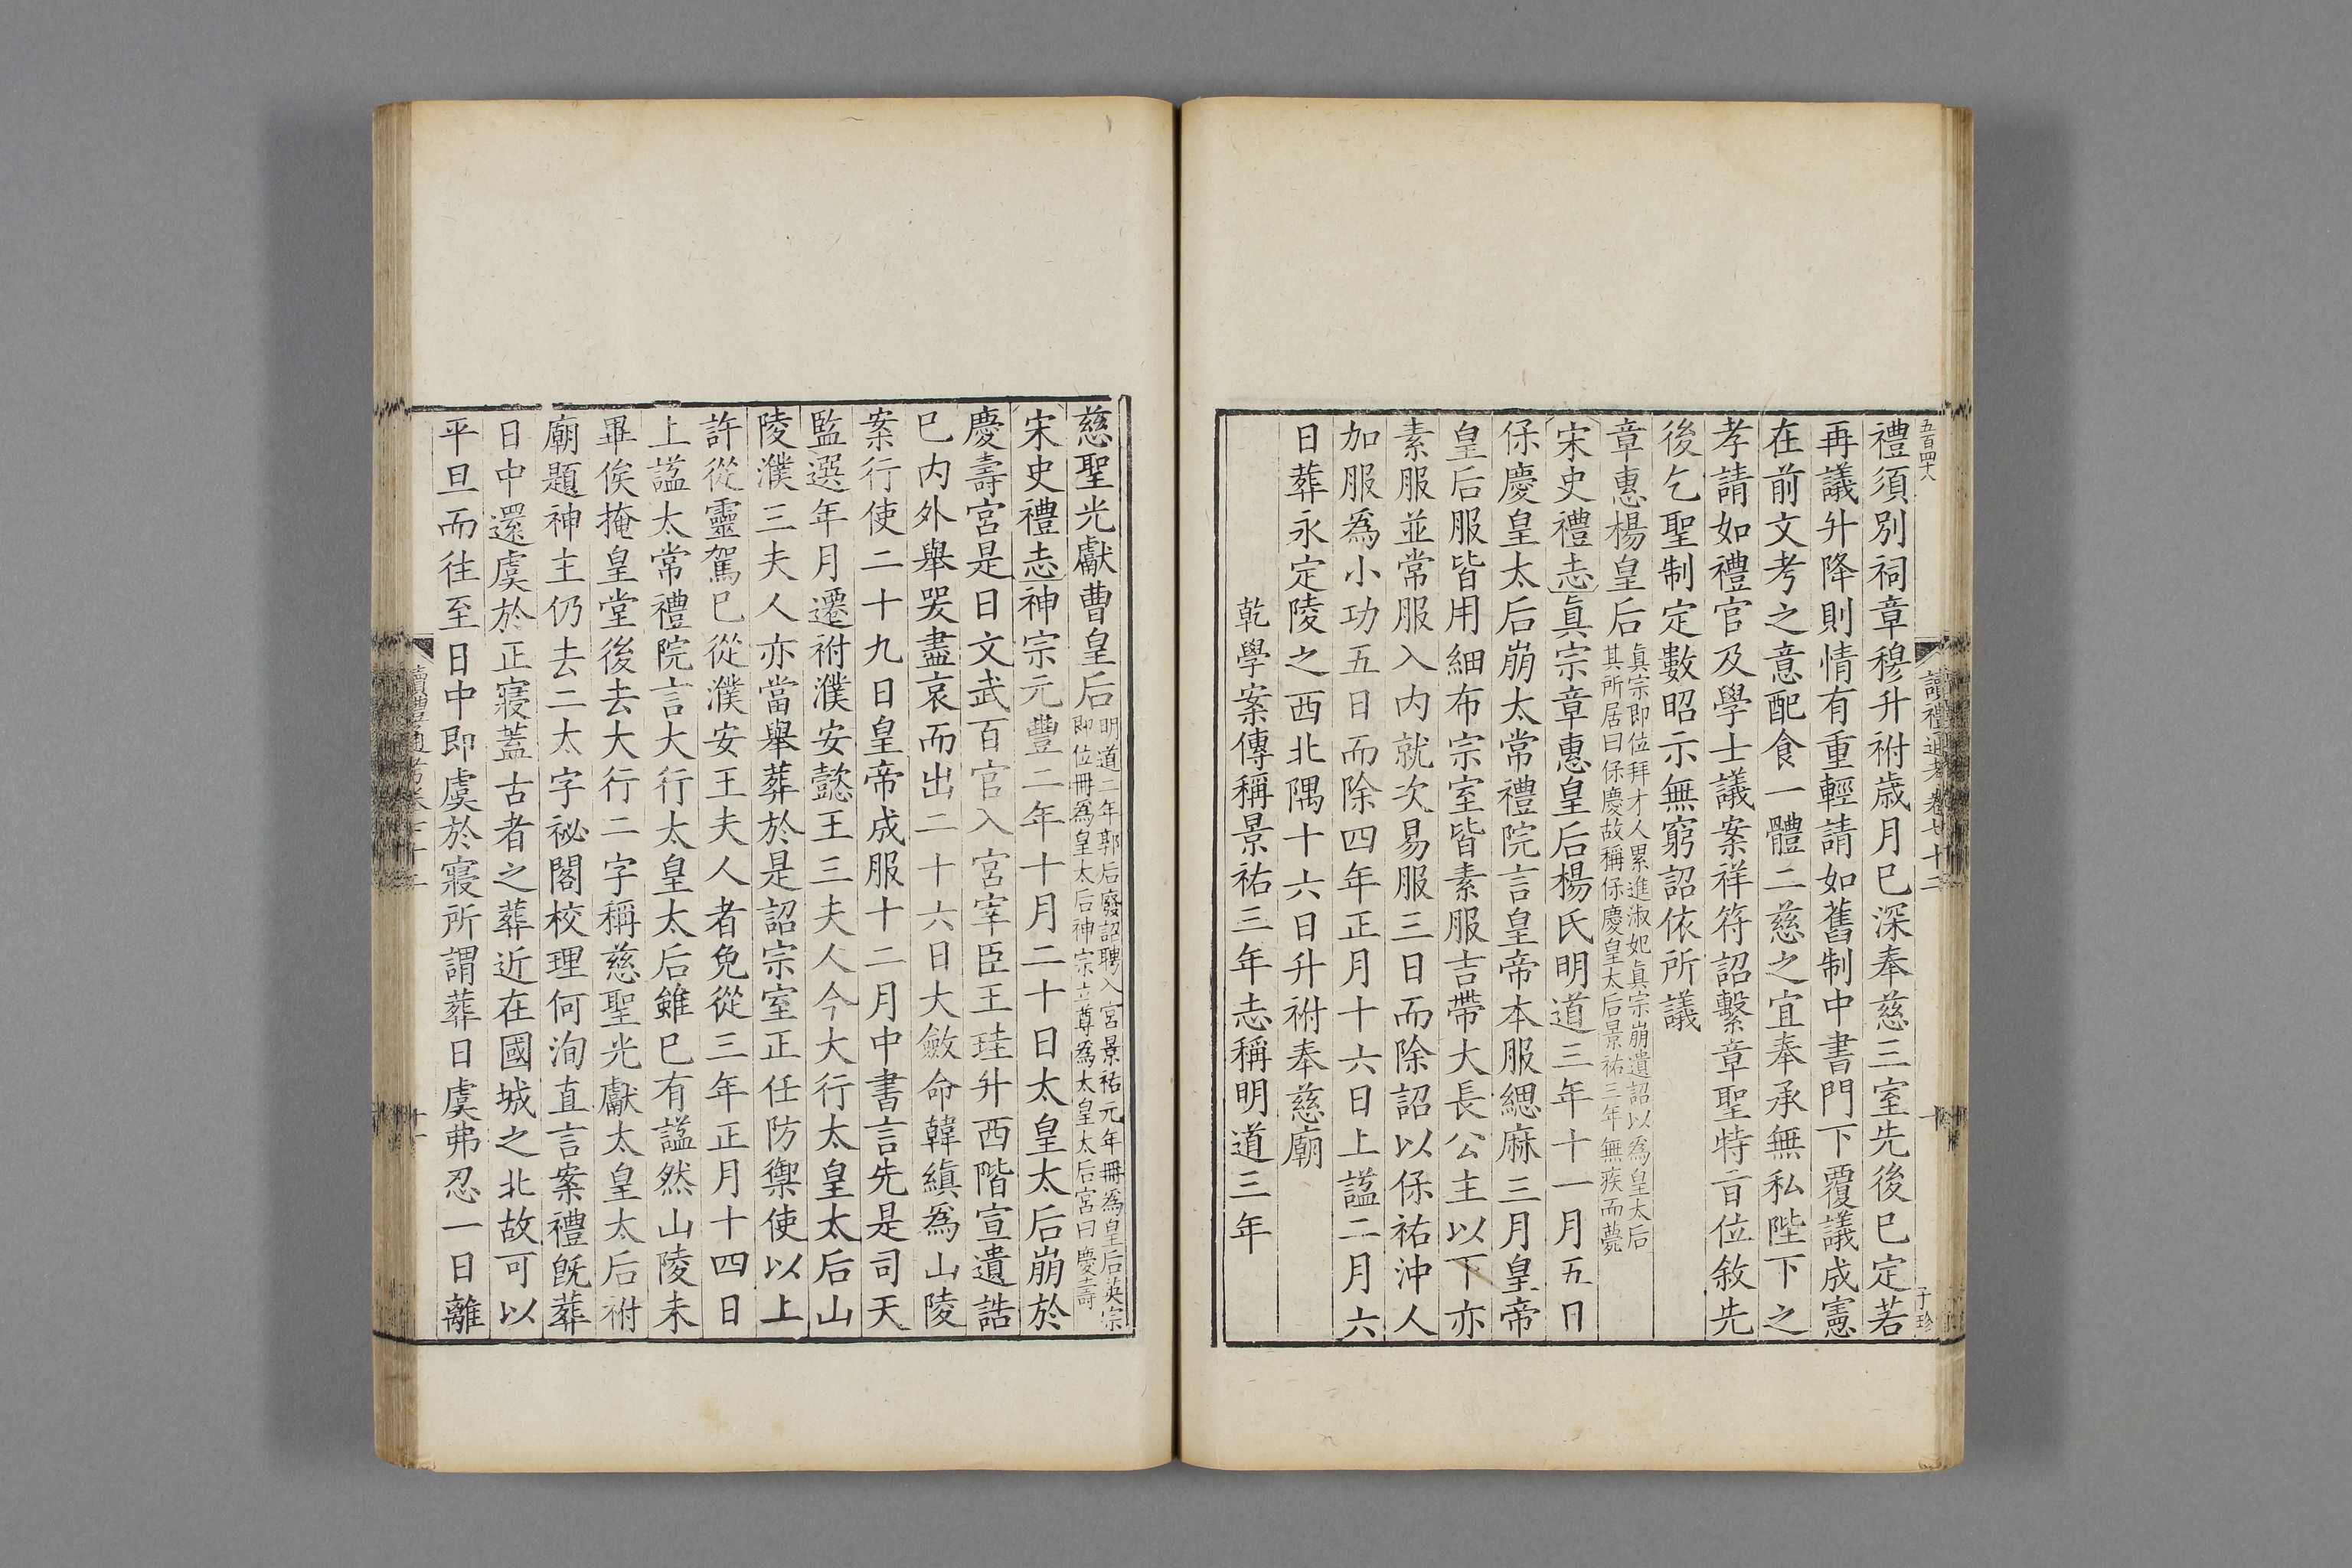 五百四十八
讀禮通考卷七十二　十　子珍
禮須別祠章穆升祔歲月巳深奉慈三室先後巳定若
再議升降則情有重輕請如舊制中書門下覆議成憲
在前文考之意配食一體二慈之宜奉承無私陛下之
孝請如禮官及學士議案祥符詔繫章聖特旨位敘先
後乞聖制定數昭示無窮詔依所議
章惠楊皇后眞宗即位拜才人累進淑妃眞宗崩遺詔以為皇太后
其所居曰保慶故稱保慶皇太后景祐三年無疾而薨
宋史禮志眞宗章惠皇后楊氏明道三年十一月五日
保慶皇太后崩太常禮院言皇帝本服緦麻三月皇帝
皇后服皆用細布宗室皆素服吉帶大長公主以下亦
素服並常服入內就次易服三日而除詔以保祐沖人
加服為小功五日而除四年正月十六日上諡二月六
日葬永定陵之西北隅十六日升祔奉慈廟
乾學案傳稱景祐三年志稱明道三年
慈聖光獻曹皇后明道二年郭后廢詔聘入宮景祐元年冊為皇后英宗
即位冊為皇太后神宗立尊為太皇太后宮曰慶壽
宋史禮志神宗元豐二年十月二十日太皇太后崩於
慶壽宮是日文武百官入宮宰臣王珪升西階宣遺誥
巳內外舉哭盡哀而出二十六日大斂命韓縝為山陵
案行使二十九日皇帝成服十二月中書言先是司天
監選年月遷祔濮安懿王三夫人今大行太皇太后山
陵濮三夫人亦當舉葬於是詔宗室正任防禦使以上
許從靈駕巳從濮安王夫人者免從三年正月十四日
上諡太常禮院言大行太皇太后雖巳有諡然山陵未
畢俟掩皇堂後去大行二字稱慈聖光獻太皇太后祔
廟題神主仍去二太字祕閣校理何洵直言案禮旣葬
日中還虞於正寢蓋古者之葬近在國城之北故可以
平旦而往至日中即虞於寢所謂葬日虞弗忍一日離
讀禮通考卷七十二　十一